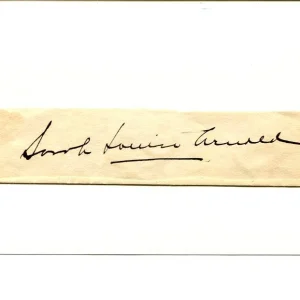 Sarah Louise Arnold